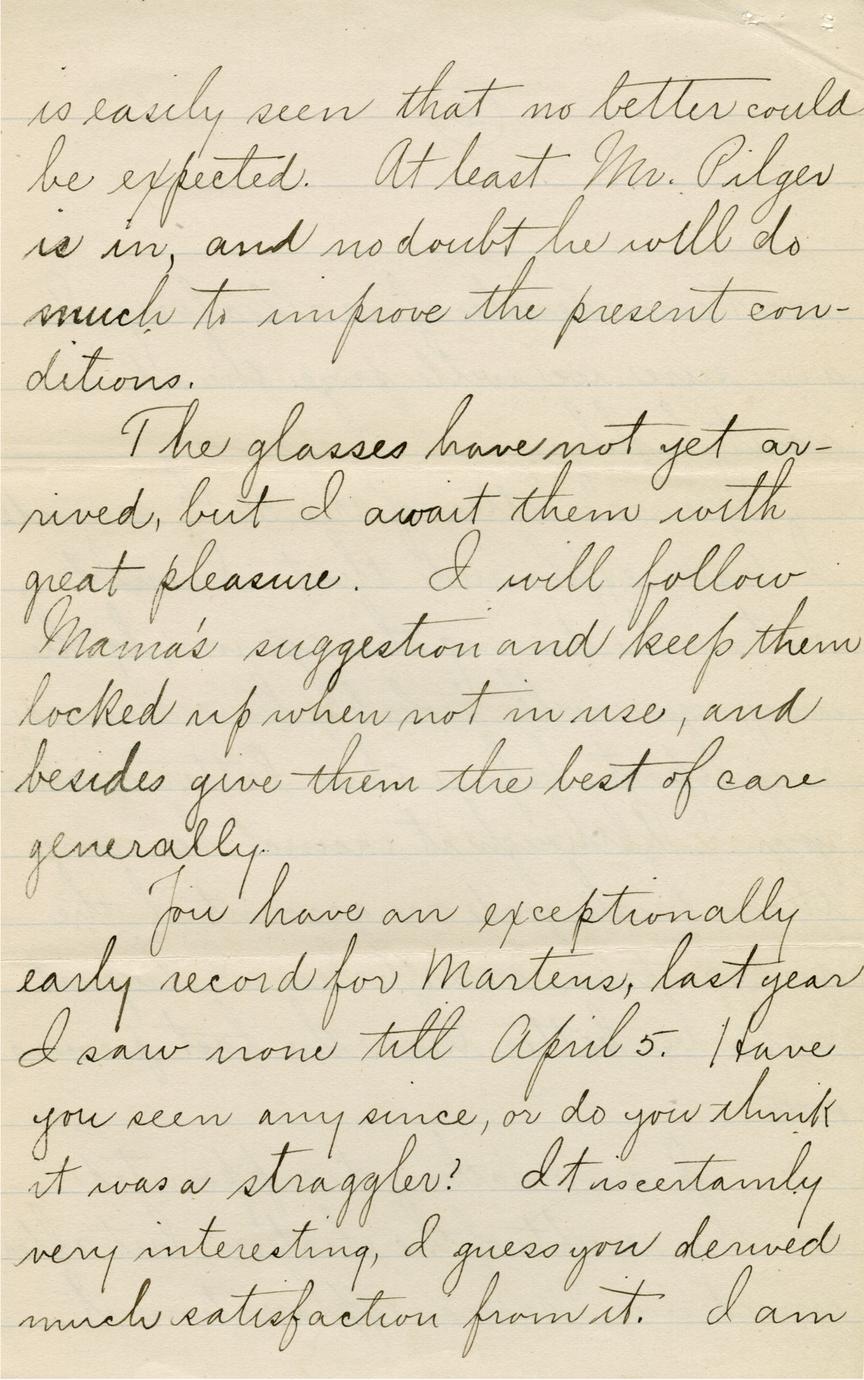 is easily seen that no better could
be expected. At least Mr. Pilger
is in, and no doubt he will do
much to improve the present con-
ditions.
The glasses have not yet ar-
rived, but I await them with
great pleasure. I will follow
Mama's suggestion and keep them
locked up when not in use, and
besides give them the best of care
generally.
You have an exceptionally
early record for Martens, last year
I saw none till April 5. Have
you seen any since, or do you think
it was a straggler? It is certainly
very interesting, I guess you derived
much satisfaction from it. I am